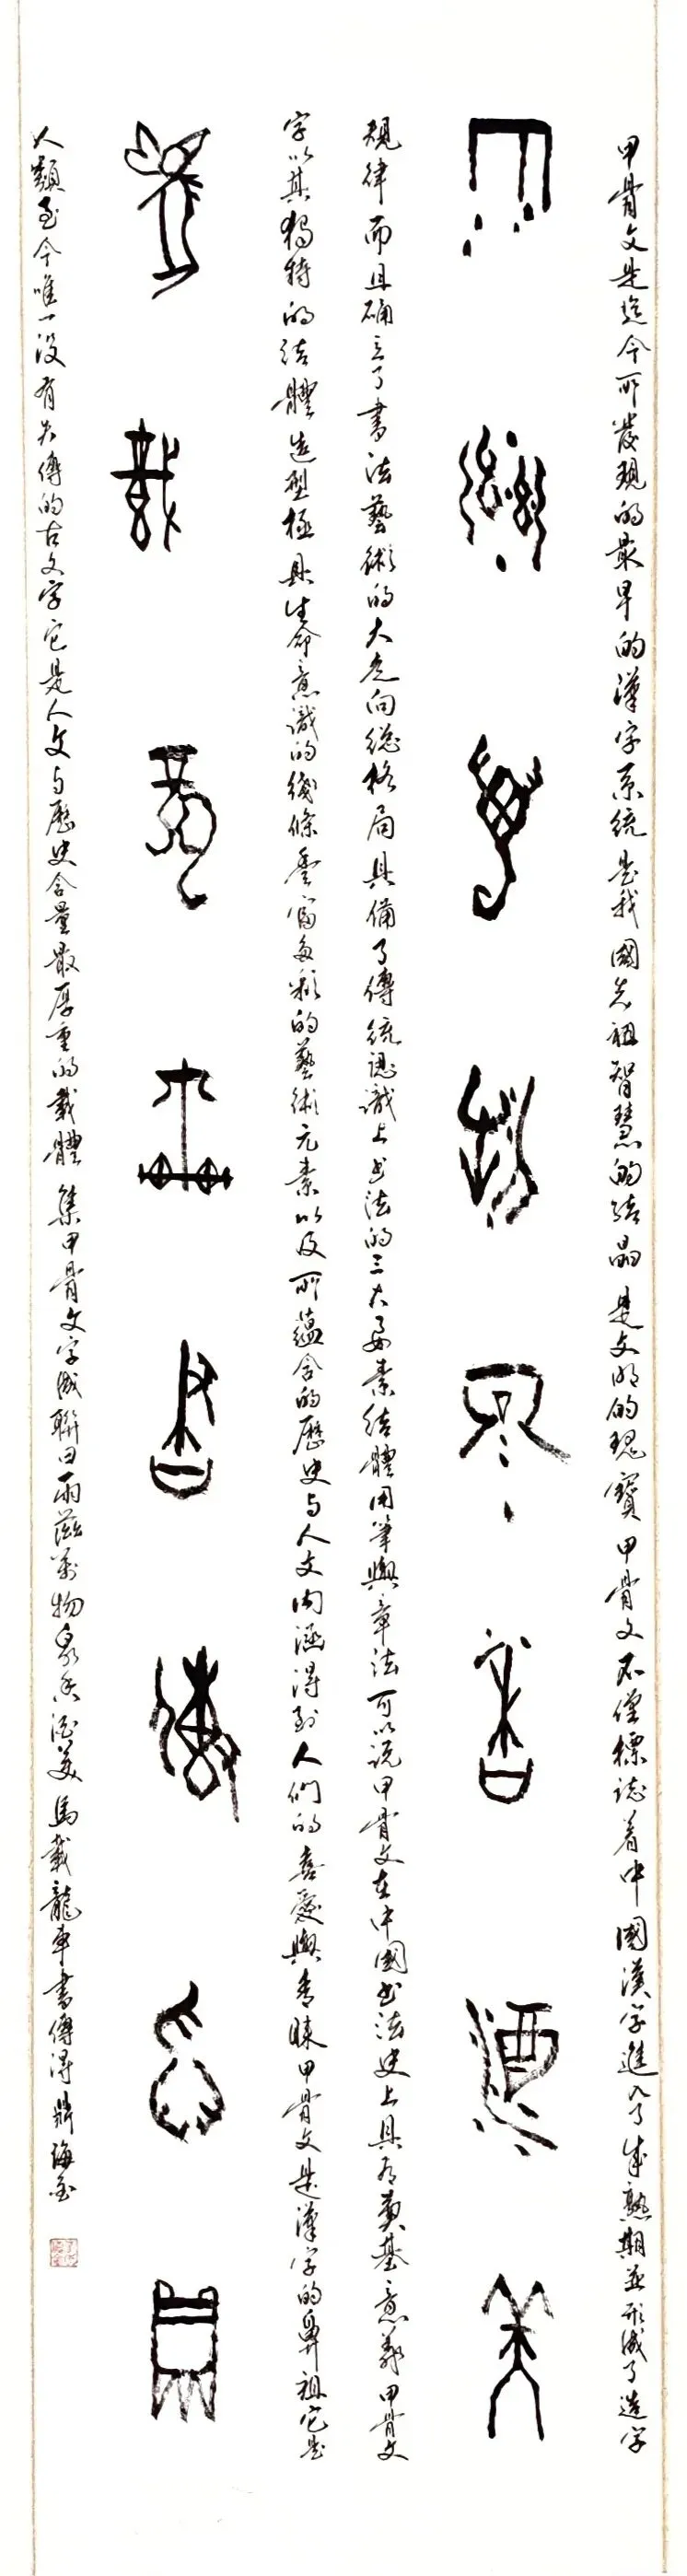 甲骨文是迄今所發現的最早的漢字系統是我國先祖智慧的結晶是文明的瑰寶甲骨文不僅標誌着中國漢字進入了成熟期並形成了造字
雨滋萬物泉香酒美
規律而且确立了書法藝術的大走向總格局具備了傳統認識上书法的三大要素結體用筆與章法可以説甲骨文在中國书法史上具有奠基意義甲骨文
字以其獨特的結體造型極具生命意識的綫條豐富多彩的藝術元素以及所蘊含的歷史与人文内涵得到人們的喜愛與青睞甲骨文是漢字的鼻祖它是
馬載龍車書傳得鼎
人類至今唯一没有失傳的古文字它是人文与歷史含量最厚重的載體 集甲骨文字成聯曰雨滋萬物泉香酒美 馬載龍車書傳得鼎 海